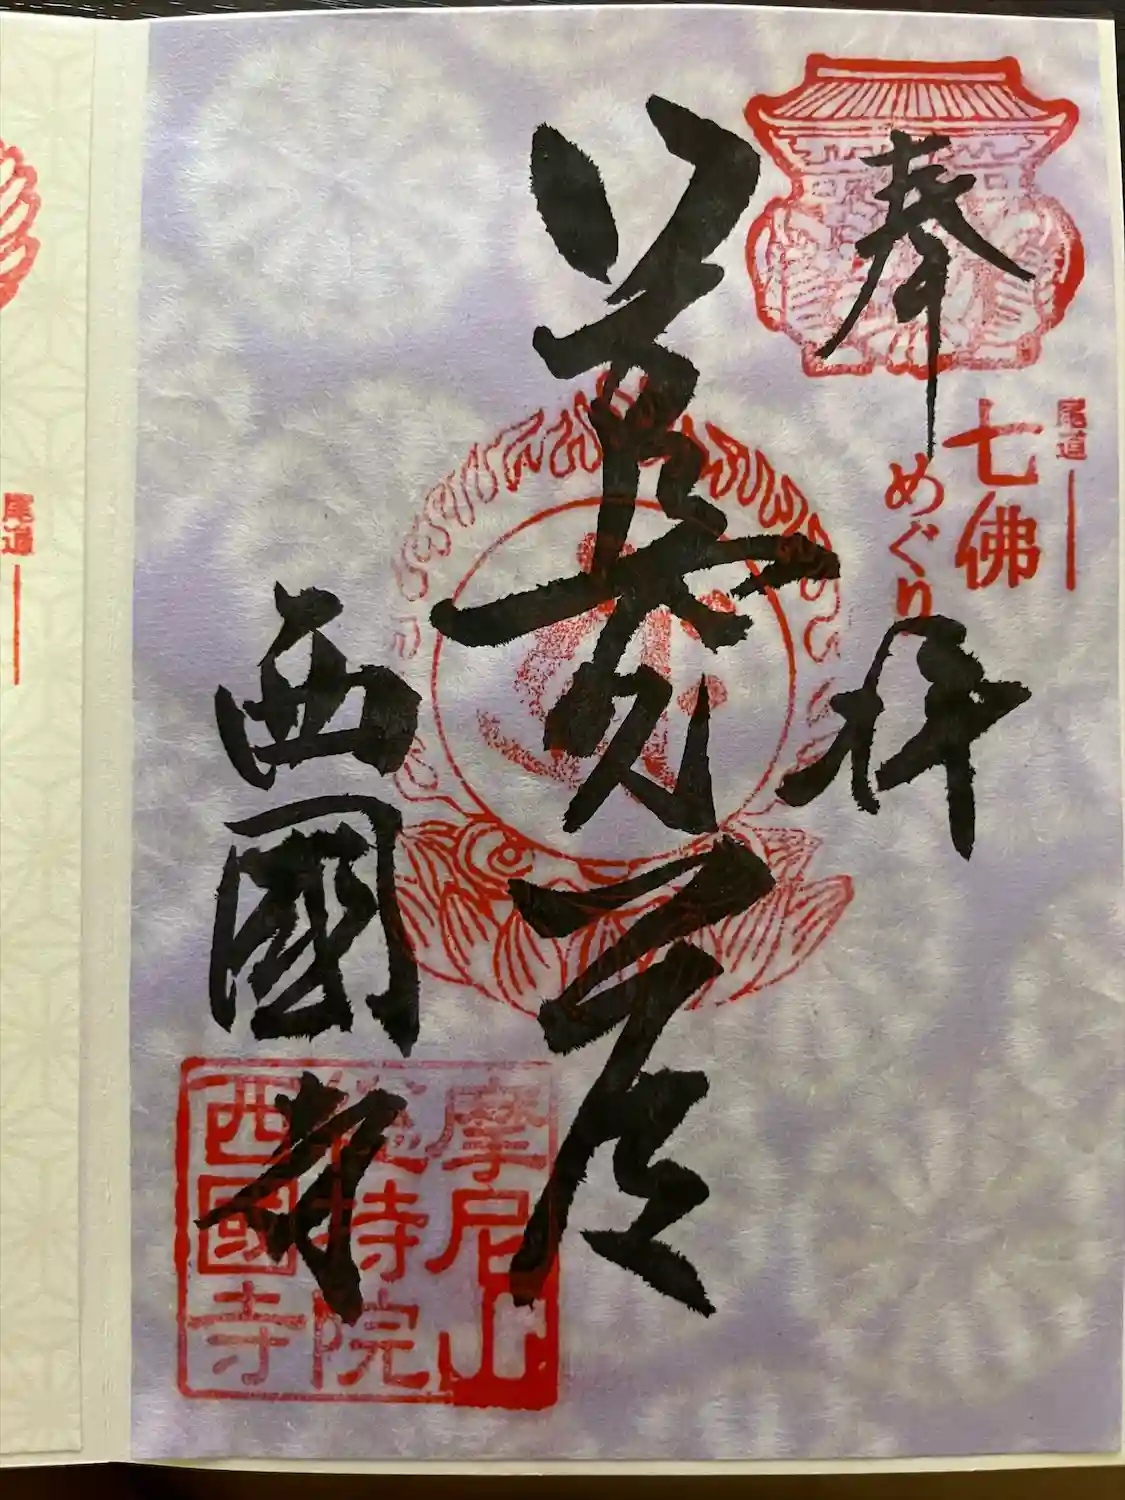 奉拝
尾道
七佛
めぐり
西國寺
摩尼山
總持院
西國寺
尾道